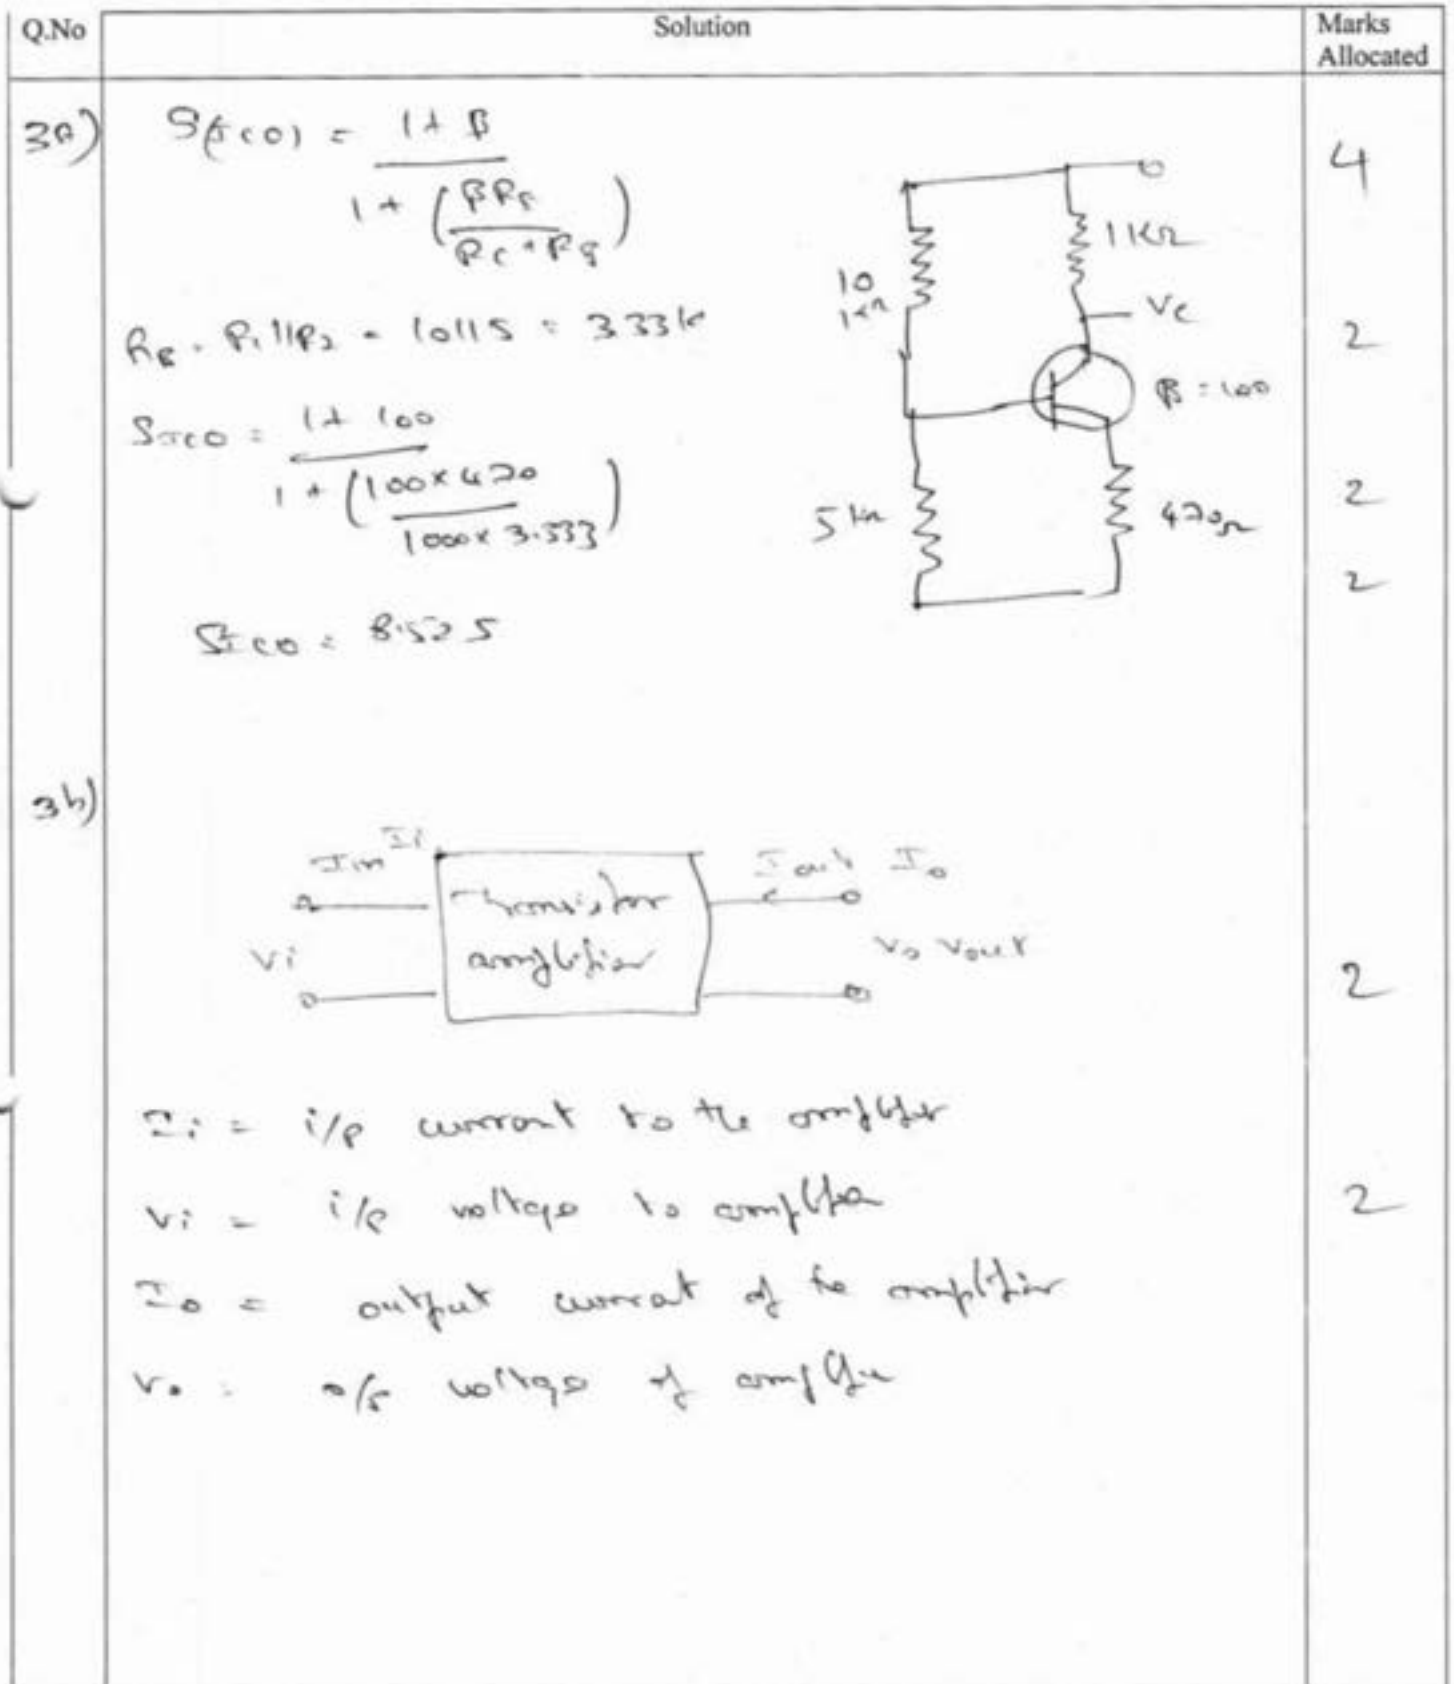 Q.No Solution Marks Allocated
3a) S(ICO) = 1 + β 4
1 + (βRE
RC + RB)
RB = R1 || R2 = 10 || 5 = 3.33 k 2
SICO = 1 + 100
1 + (100 × 470
1000 × 3.333) 2
2
SICO = 8.525
1 KΩ
10 KΩ
VC
β = 100
5 kΩ
470 Ω
3b)
Iin Ii Iout Io
Transistor
Vi amplifier Vo Vout 2
Ii = i/p current to the amplifier
Vi = i/p voltage to amplifier 2
Io = output current of the amplifier
Vo = o/p voltage of amplifier